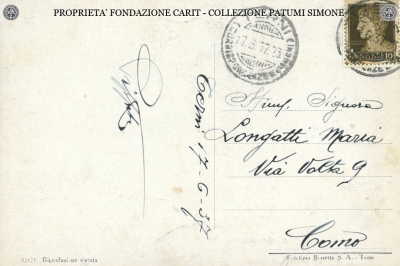 PROPRIETA' FONDAZIONE CARIT - COLLEZIONE PATUMI SIMONE
TERNI
Terni 17-6-37
Signora
Longatti Maria
Via Volta 9
Como
Riproduzione vietata
S. A. - Terni